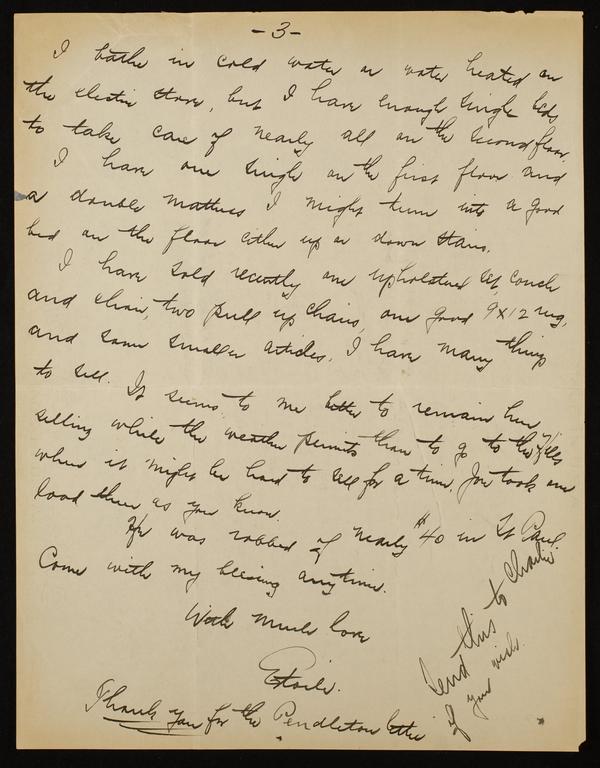 -3-
I bathe in cold water or water heated on
the electric stove, but I have enough single beds
to take care of nearly all on the second floor.
I have one single on the first floor and
a double mattress I might turn into a good
bed on the floor either up or down stairs.
I have sold recently one upholstered set, couch
and chair, two pull up chairs, one good 9x12 rug,
and some smaller articles. I have many things
to sell. It seems to me better to remain here
selling while the weather permits than to go to the
where it might be hard to sell for a time. Joe took one
load there as you know.
He was robbed of nearly $40 in St Paul.
Come with my blessing anytime.
With much love
Etoile.
Thank you for the Pendleton letter
Send this to Charlie
if you wish.